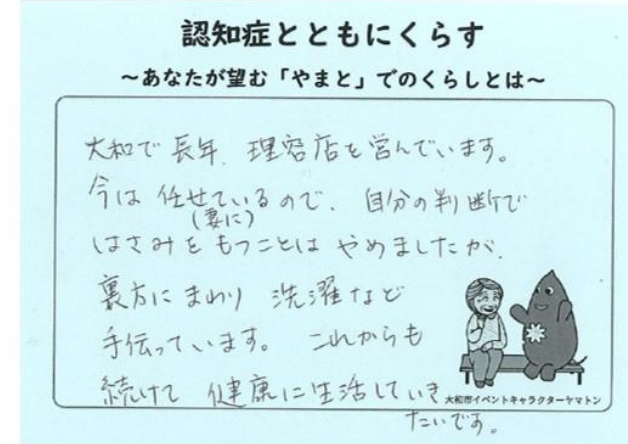 認知症とともにくらす
～あなたが望む「やまと」でのくらしとは～
大和で長年、理容店を営んでいます。
今は任せているので、自分の判断で
(妻に)
はさみをもつことはやめましたが、
裏方にまわり 洗濯など
手伝っています。これからも
続けて 健康に生活していき
たいです。
大和市イベントキャラクターヤマトン